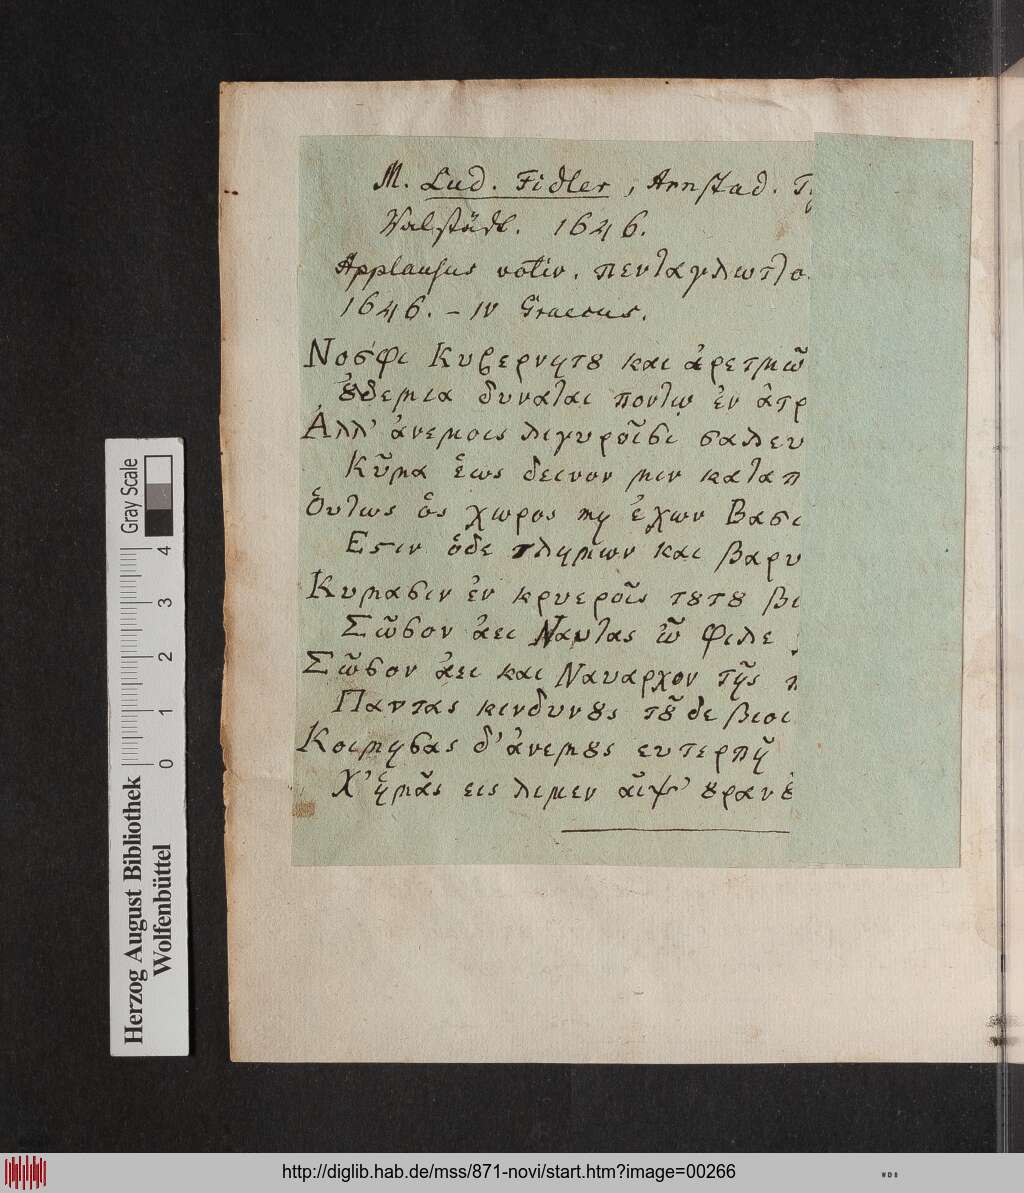 M. Lud. Fidler, Arnstad.
Walstädt. 1646.
Applausus votiv. πενταγλωττο
1646. – IV Graecus.
Νοσφι Κυβερνητȣ και ἀρετμῶ
ȣ̓δεμια δυναται ποντῳ ἐν ἀτρ
Ἀλλ' ἀνεμοις λιγυροῖσι σαλευ
Κῦμα ἑως δεινον μιν καταπ
Ὁυτως ὁς χωρος μη ἐχων Βασι
Εϛιν ὁδε τλημων και βαρυ
Κυμασιν ἐν κρυεροῖς τȣτȣ βι
Σῶσον ἀει Ναυτας ὦ φιλε
Σῶσον ἀει και Ναυαρχον τῆς
Παντας κινδυνȣς τȣ͂δε βιοι
Κοιμησας δ' ἀνεμȣς ευτερπῆ
Χ' ἡμᾶς εις λιμεν' αἶψ' ȣρανȣ
Herzog August Bibliothek
Wolfenbüttel
Gray Scale
0 1 2 3 4
http://diglib.hab.de/mss/871-novi/start.htm?image=00266